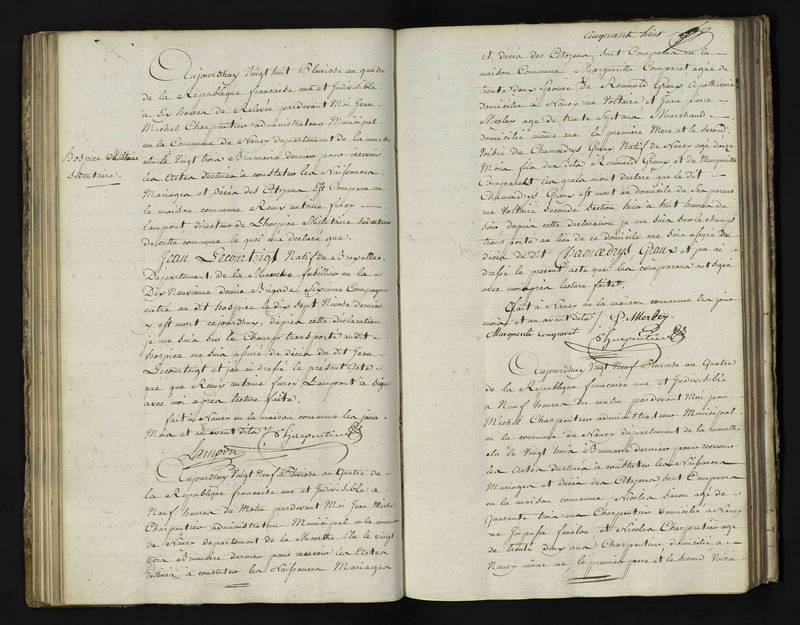 Aujourdhuy Vingt huit Pluviose an quatre
de la Republique francaise une et Indivisible
a Six heures de Relevée pardevant Moi Jean
Michel Charpentier administrateur Municipal
en la Commune de Nancy departement de la meurthe
elu le Vingt trois Brumaire dernier pour recevoir
les Actes destinés a constater les Naissances
Mariages et Décès des Citoyens Est Comparu en
la maison commune Remy antoine furcy
Lampont directeur de Lhospice Militaire Sédentaire
de cette commune le quel m'a declaré que
Jean Lecourtoigt Natif de
Departement de la Manche fusillier en la
Dix Neuvieme demie Brigade Sixieme Compagnie
entré au dit hospice le dix Sept Nivose dernier
y est mort cejourdhuy, d'après cette déclaration
je me suis sur le Champ transporté audit
hospice me suis assuré du décès du dit Jean
Lecourtoigt et j'en ai dressé le présent Acte
que Remy antoine furcy Lampont a Signé
avec moi apres lecture faite.
fait a Nancy en la maison commune les jour
Mois et an avant dits
Lampon Charpentier
Aujourdhuy Vingt Neuf Pluviose an Quatre de
la Republique française une et Indivisible a
Neuf heures du Matin pardevant Moi Jean Michel
Charpentier administrateur Municipal en la commune
de Nancy departement de la Meurthe Elu le Vingt
trois Brumaire dernier pour recevoir les Actes
destinés a constater les Naissances Mariages
Hospice Militaire
Sédentaire.
Cinquante huit
et décès des Citoyens Sont Comparus en la
maison Commune Marguerite Comparet agée de
trente deux Epouse de Romuald Graux Apothicaire
domiciliée a Nancy rue Voltaire et Jean pierre
Morley age de trente Sept ans Marchand
domicilié même rue la premiere Mere et le Second
Voisin de Chamœdrys Graux Natif de Nancy agé douze
Mois fils des dits Romuald Graux et de Marguerite
Comparet les quels m'ont declaré que le dit
Chamœdrys Graux est mort au domicile de Ses parens
rue Voltaire Seconde Section hier a huit heures du
Soir d'apres cette declaration je me suis sur le champ
transporté au lieu de ce domicile me suis assuré du
décès du dit Chamœdrys Graux et j'en ai
dressé le présent Acte que les comparans ont signé
avec moi après lecture faite.
Fait a Nancy en la maison commune les jour
mois et an avant dits P. Morley
Marguerite Comparet Charpentier
Aujourdhuy Vingt Neuf Pluviose an Quatre
de la Republique francaise une et Indivisible
a Neuf heures du matin pardevant Moi Jean
Michel Charpentier administrateur Municipal
en la commune de Nancy departement de la meurthe
elu le Vingt trois Brumaire dernier pour recevoir
les Actes destinés a constater les Naissances
Mariages et décès des Citoyens Sont Comparus
en la maison commune Nicolas age de
Quarante trois ans Charpentier domicilié a Nancy
rue Impasse fenélon et Nicolas Charpentier age
de trente deux ans Charpentier domicilié a
Nancy même rue le premier pere et le Second Voisin